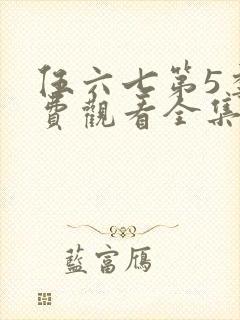 伍六七第5季
費觀看全集
藍富鴈